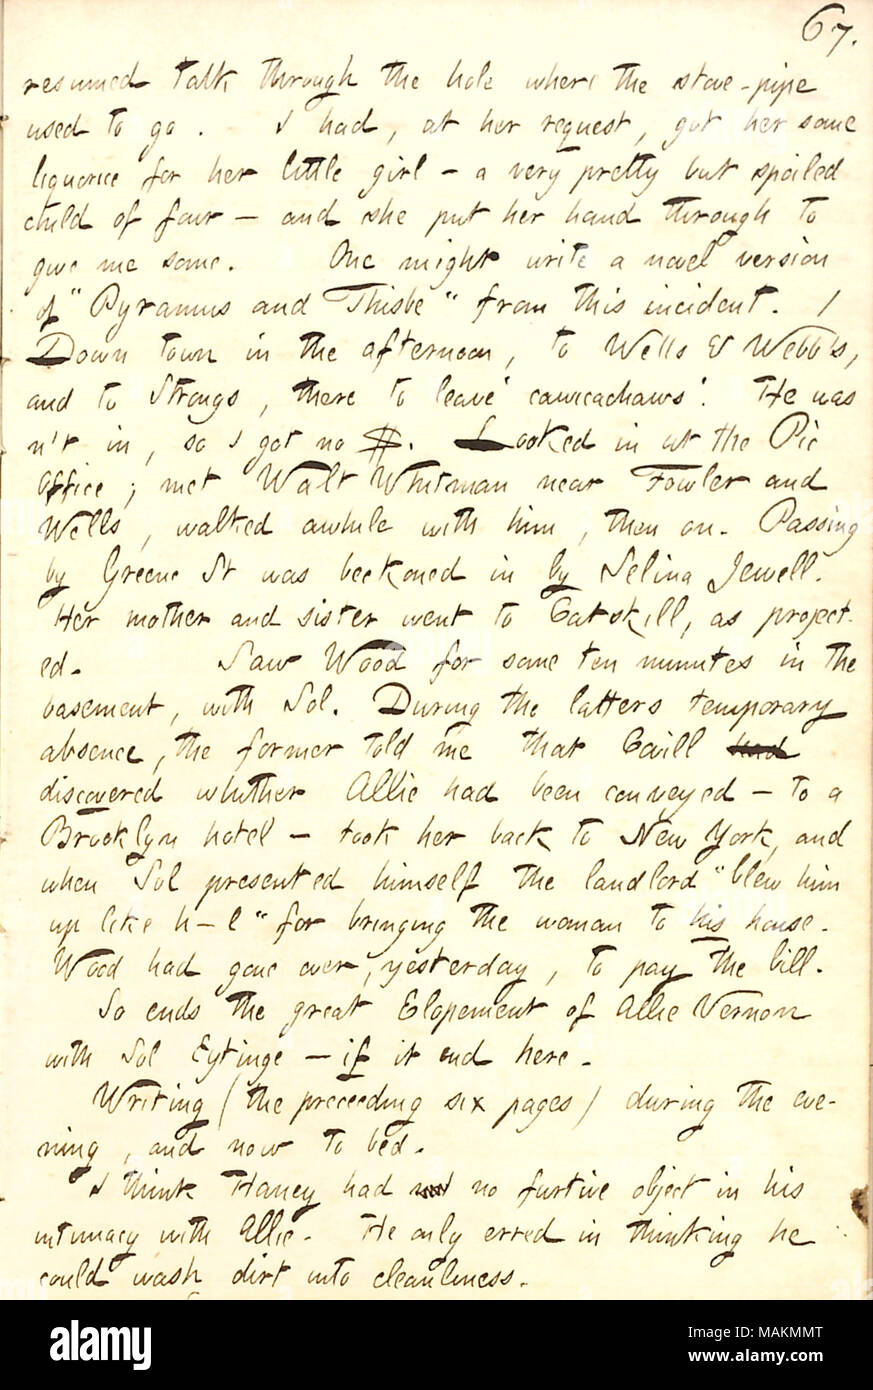 67.
resumed talk through the hole where the stove-pipe
used to go. I had, at her request, got her some
liquorice for her little girl — a very pretty but spoiled
child of four — and she put her hand through to
give me some. One might write a novel version
of "Pyramus and Thisbe" from this incident. /
Down town in the afternoon, to Wells & Webb's,
and to Strongs, there to leave' cawcachaws'. He was
n't in, so I got no $. Looked in at the Pic
office; met Walt Whitman near Fowler and
Wells, walked awhile with him, then on. Passing
by Greene St was beckoned in by Selina Jewell.
Her mother and sister went to Catskill, as project-
ed. Saw Wood for some ten minutes in the
basement, with Sol. During the latters temporary
absence, the former told me that Cahill had
discovered whither Allie had been conveyed — to a
Brooklyn hotel — took her back to New York, and
when Sol presented himself the landlord "blew him
up like h—l" for bringing the woman to his house.
Wood had gone over, yesterday, to pay the bill.
So ends the great Elopement of Allie Vernon
with Sol Eytinge — if it end here.
Writing (the preceeding six pages) during the eve-
ning, and now to bed.
I think Haney had no furtive object in his
intimacy with Allie. He only erred in thinking he
could wash dirt into cleanliness.
alamy
Image ID: MAKMMT
www.alamy.com